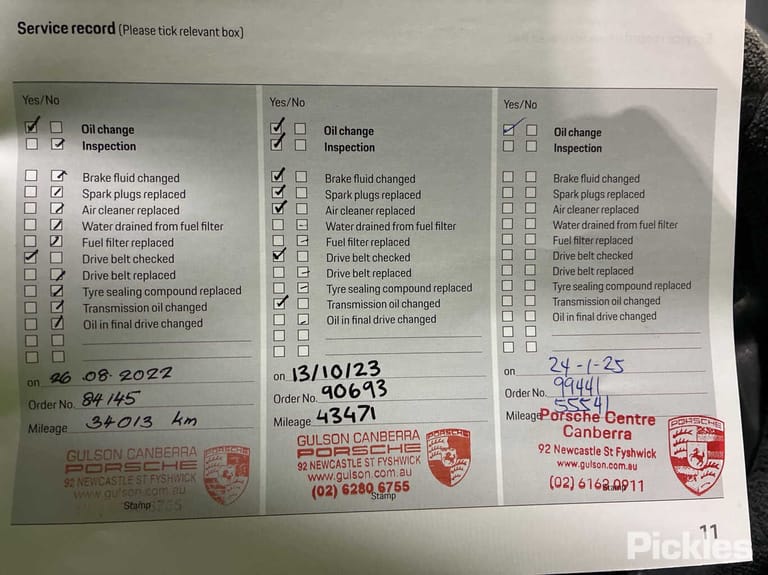 Service record (Please tick relevant box)
Yes/No
Oil change
Inspection
Brake fluid changed
Spark plugs replaced
Air cleaner replaced
Water drained from fuel filter
Fuel filter replaced
Drive belt checked
Drive belt replaced
Tyre sealing compound replaced
Transmission oil changed
Oil in final drive changed
on 26.08.2022
Order No. 84145
Mileage 34013 km
GULSON CANBERRA
PORSCHE
92 NEWCASTLE ST FYSHWICK
www.gulson.com.au
Stamp
PORSCHE
Yes/No
Oil change
Inspection
Brake fluid changed
Spark plugs replaced
Air cleaner replaced
Water drained from fuel filter
Fuel filter replaced
Drive belt checked
Drive belt replaced
Tyre sealing compound replaced
Transmission oil changed
Oil in final drive changed
on 13/10/23
Order No. 90693
Mileage 43471
GULSON CANBERRA
PORSCHE
92 NEWCASTLE ST FYSHWICK
www.gulson.com.au
(02) 6280 6755
Stamp
PORSCHE
Yes/No
Oil change
Inspection
Brake fluid changed
Spark plugs replaced
Air cleaner replaced
Water drained from fuel filter
Fuel filter replaced
Drive belt checked
Drive belt replaced
Tyre sealing compound replaced
Transmission oil changed
Oil in final drive changed
on 24-1-25
Order No. 99441
Mileage 55541
Porsche Centre
Canberra
92 Newcastle St Fyshwick
www.gulson.com.au
(02) 6162 0911
Stamp
PORSCHE
11
Pickles